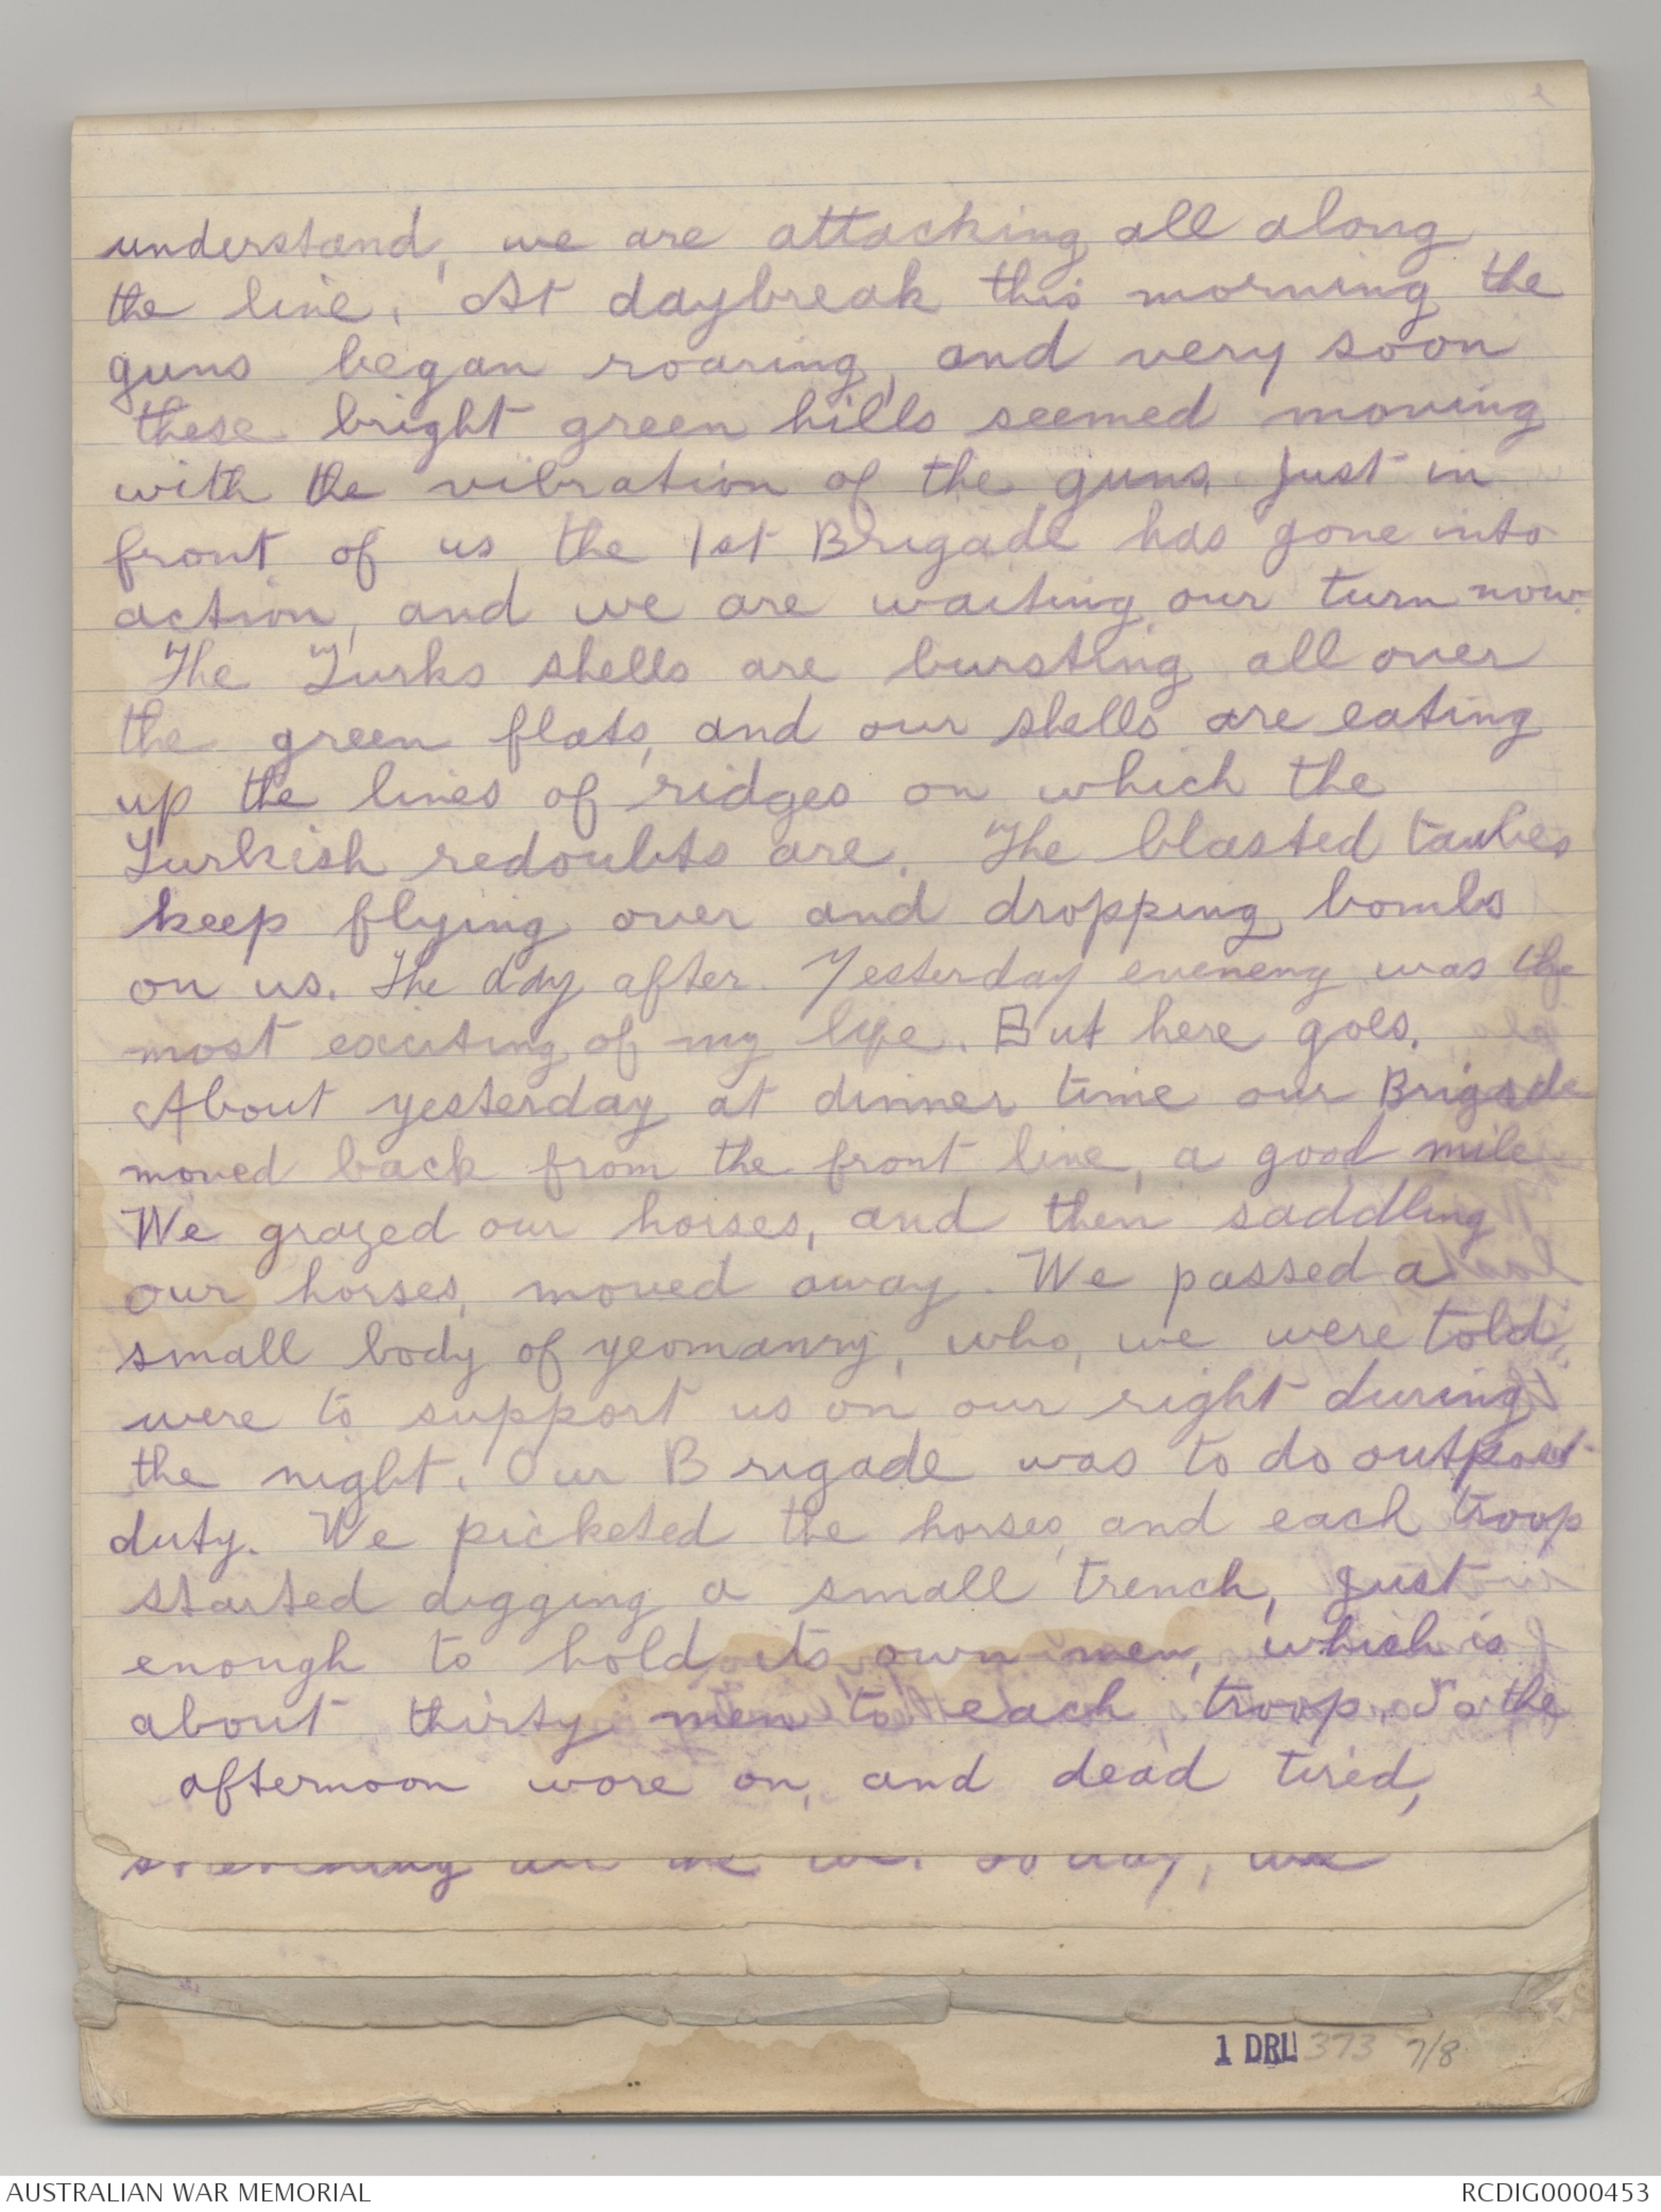 understand, we are attacking all along
the line. At daybreak this morning the
guns began roaring, and very soon
these bright green hills seemed moving
with the vibration of the guns. Just in
front of us the 1st Brigade has gone into
action, and we are waiting our turn now.
The Turks shells are bursting all over
the green flats, and our shells are eating
up the lines of ridges on which the
Turkish redoubts are. The blasted taubes
keep flying over and dropping bombs
on us. The day after. Yesterday eveneng was the
most exciting of my life. But here goes.
About yesterday at dinner time our Brigade
moved back from the front line, a good mile
We grazed our horses, and then saddling
our horses, moved away. We passed a
small body of yeomanry, who, we were told,
were to support us on our right during
the night. Our Brigade was to do outpost
duty. We picketed the horses, and each troop
started digging a small trench, just
enough to hold its own men, which is
about thirty men to each troop. So the
afternoon wore on, and dead tired,
1 DRL 373 7/8
AUSTRALIAN WAR MEMORIAL
RCDIG0000453